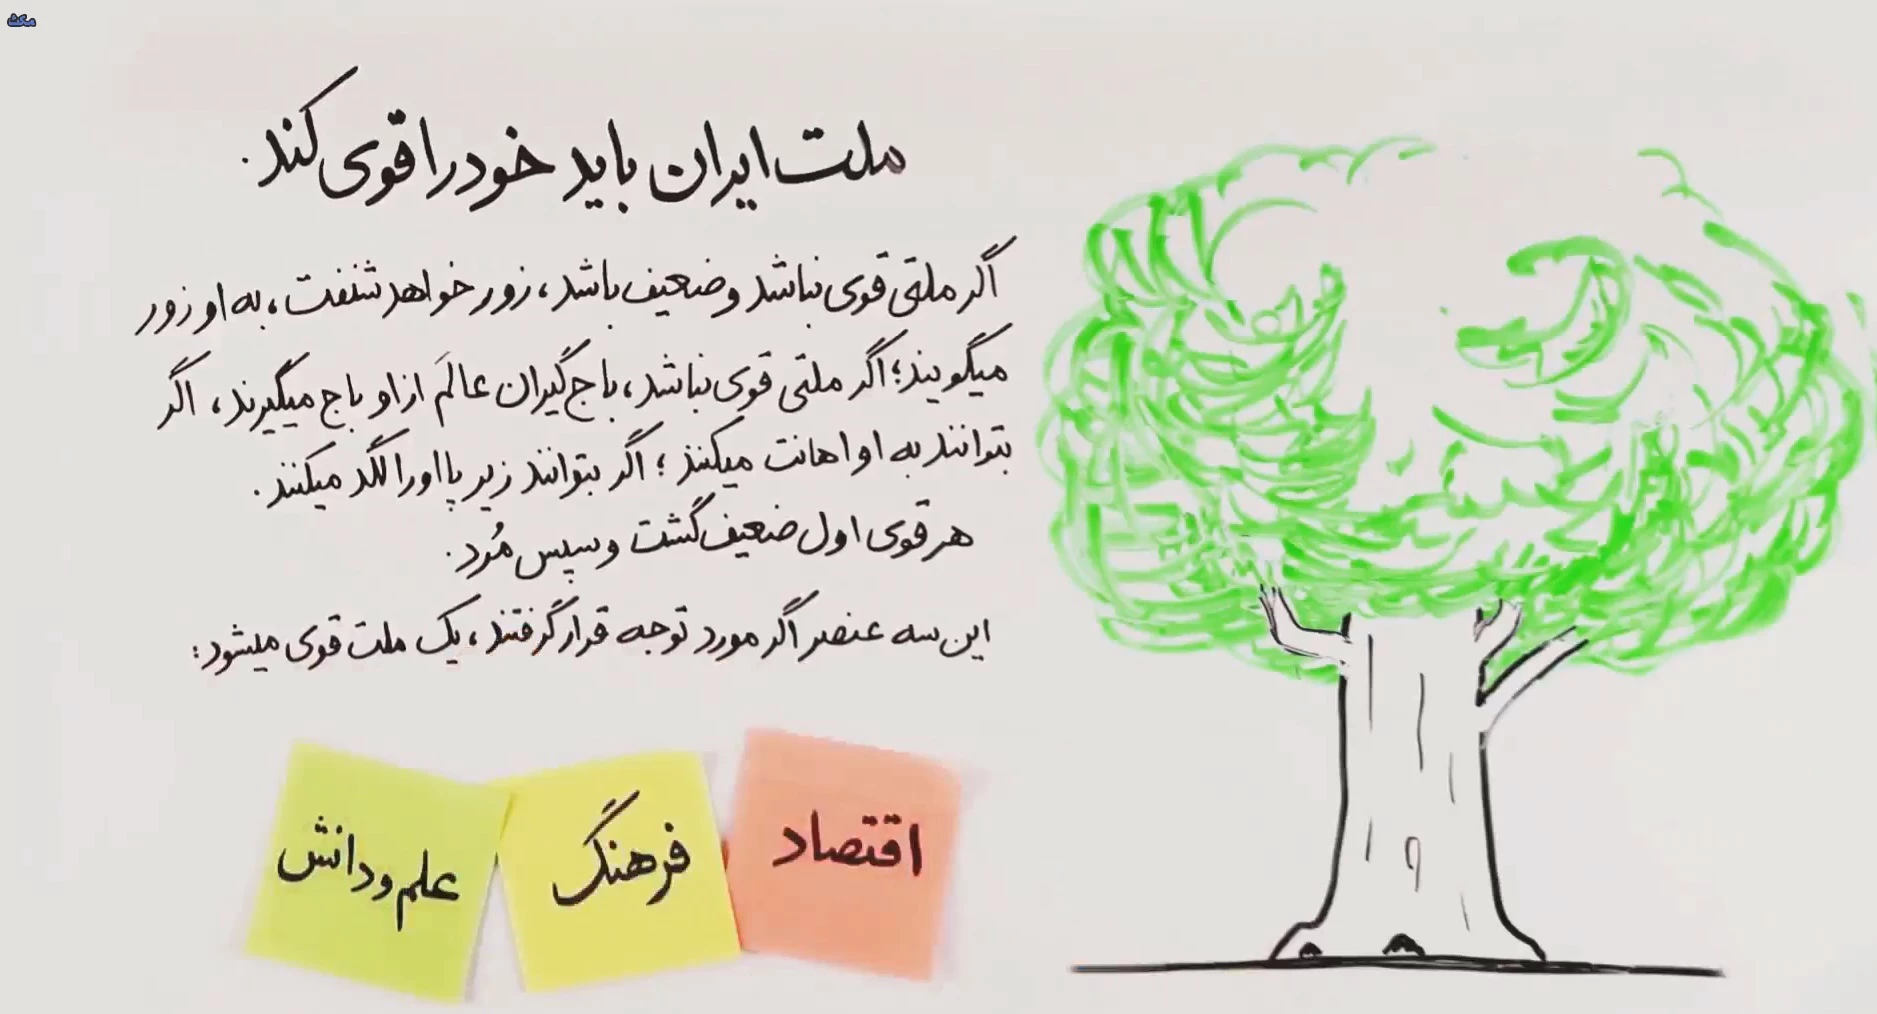 مکث
ملت ایران باید خود را قوی کند.
اگر ملتی قوی نباشد و ضعیف باشد، زور خواهد شنفت، به او زور
میگویند؛ اگر ملتی قوی نباشد، باج‌گیران عالَم از او باج میگیرند، اگر
بتوانند به او اهانت میکنند؛ اگر بتوانند زیر پا او را لگد میکنند.
هر قوی اول ضعیف گشت و سپس مُرد.
این سه عنصر اگر مورد توجه قرار گرفتند، یک ملت قوی میشود:
اقتصاد
فرهنگ
علم و دانش